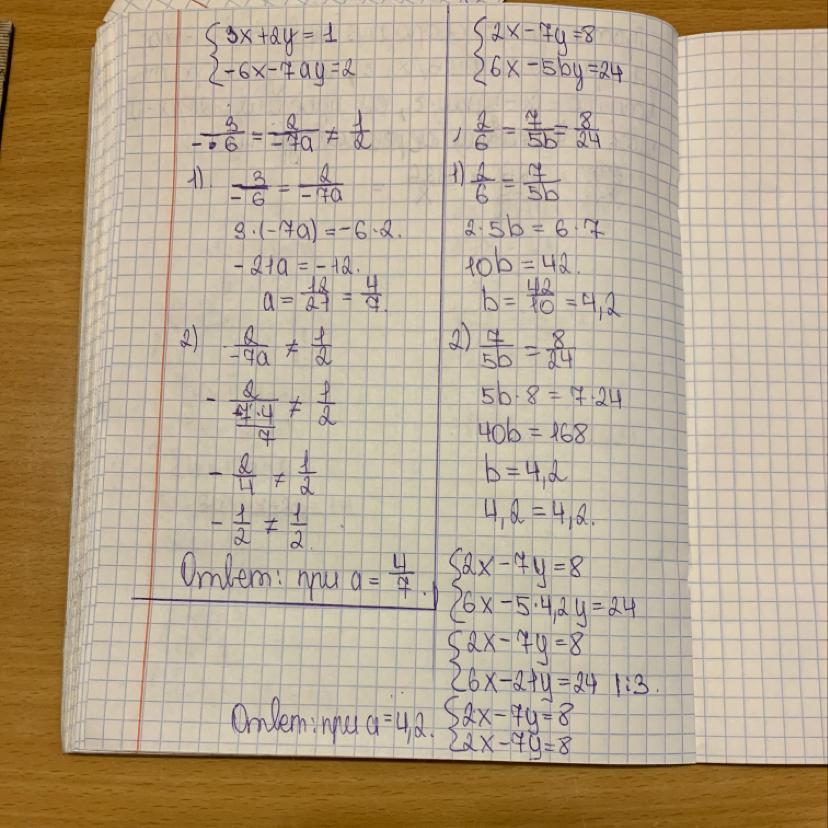 {3x+2y=1
{-6x-7ay=2
3/-6 = 2/-7a ≠ 1/2
1) 3/-6 = 2/-7a
3·(-7a)=-6·2.
-21a=-12.
a=12/21=4/7.
2) 2/-7a ≠ 1/2
-2/(7·4/7) ≠ 1/2
-2/4 ≠ 1/2
-1/2 ≠ 1/2.
Ответ: при a=4/7.
{2x-7y=8
{6x-5by=24
2/6=7/5b=8/24
1) 2/6=7/5b
2·5b=6·7
10b=42.
b=42/10=4,2
2) 7/5b=8/24
5b·8=7·24
40b=168
b=4,2
4,2=4,2.
{2x-7y=8
{6x-5·4,2y=24
{2x-7y=8
{6x-21y=24 |:3.
{2x-7y=8
{2x-7y=8
Ответ: при a=4,2.